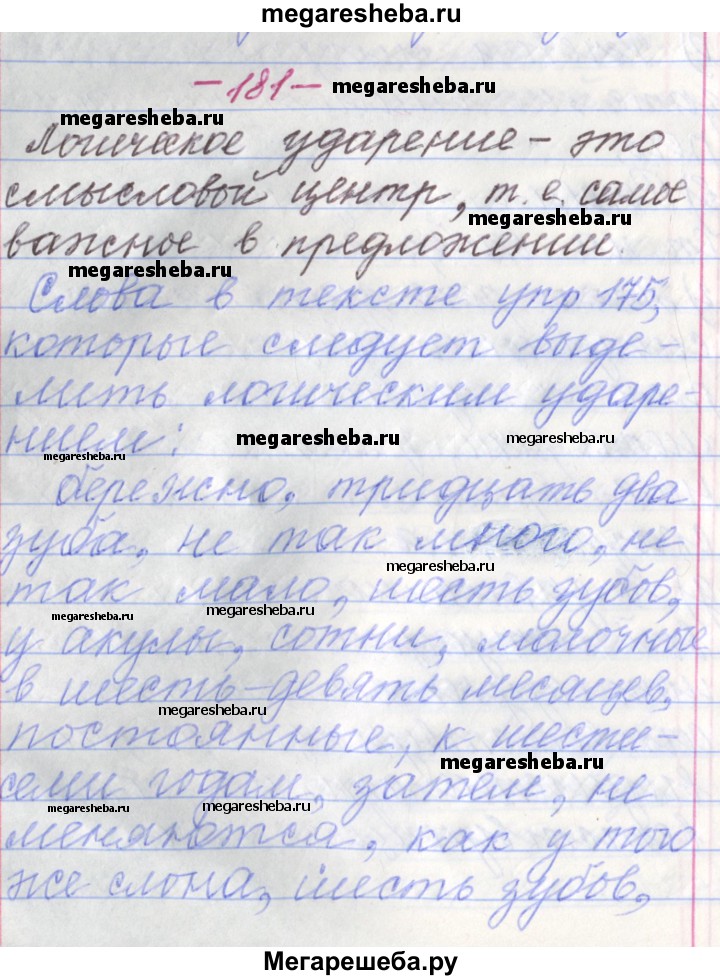 megaresheba.ru
-181-
megaresheba.ru
megaresheba.ru
Логическое ударение – это
смысловой центр, т. е. самое
megaresheba.ru
важное в предложении.
megaresheba.ru
Слова в тексте упр 175,
которые следует выде-
лить логическим ударе-
нием:
megaresheba.ru
megaresheba.ru
megaresheba.ru
бережно, тридцать два
зуба, не так много, не
megaresheba.ru
так мало, шесть зубов,
megaresheba.ru
megaresheba.ru
у акулы, сотни, молочные
в шесть-девять месяцев,
megaresheba.ru
постоянные, к шести-
megaresheba.ru
семи годам, затем, не
megaresheba.ru
megaresheba.ru
меняются, как у того
же слона, шесть зубов,
Мегарешеба.ру